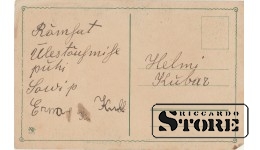 Rõmsat
Ülestõusmise
pühi
Soovip
Erna Kukk
Helmi
Kubar
RICCARDO
STORE